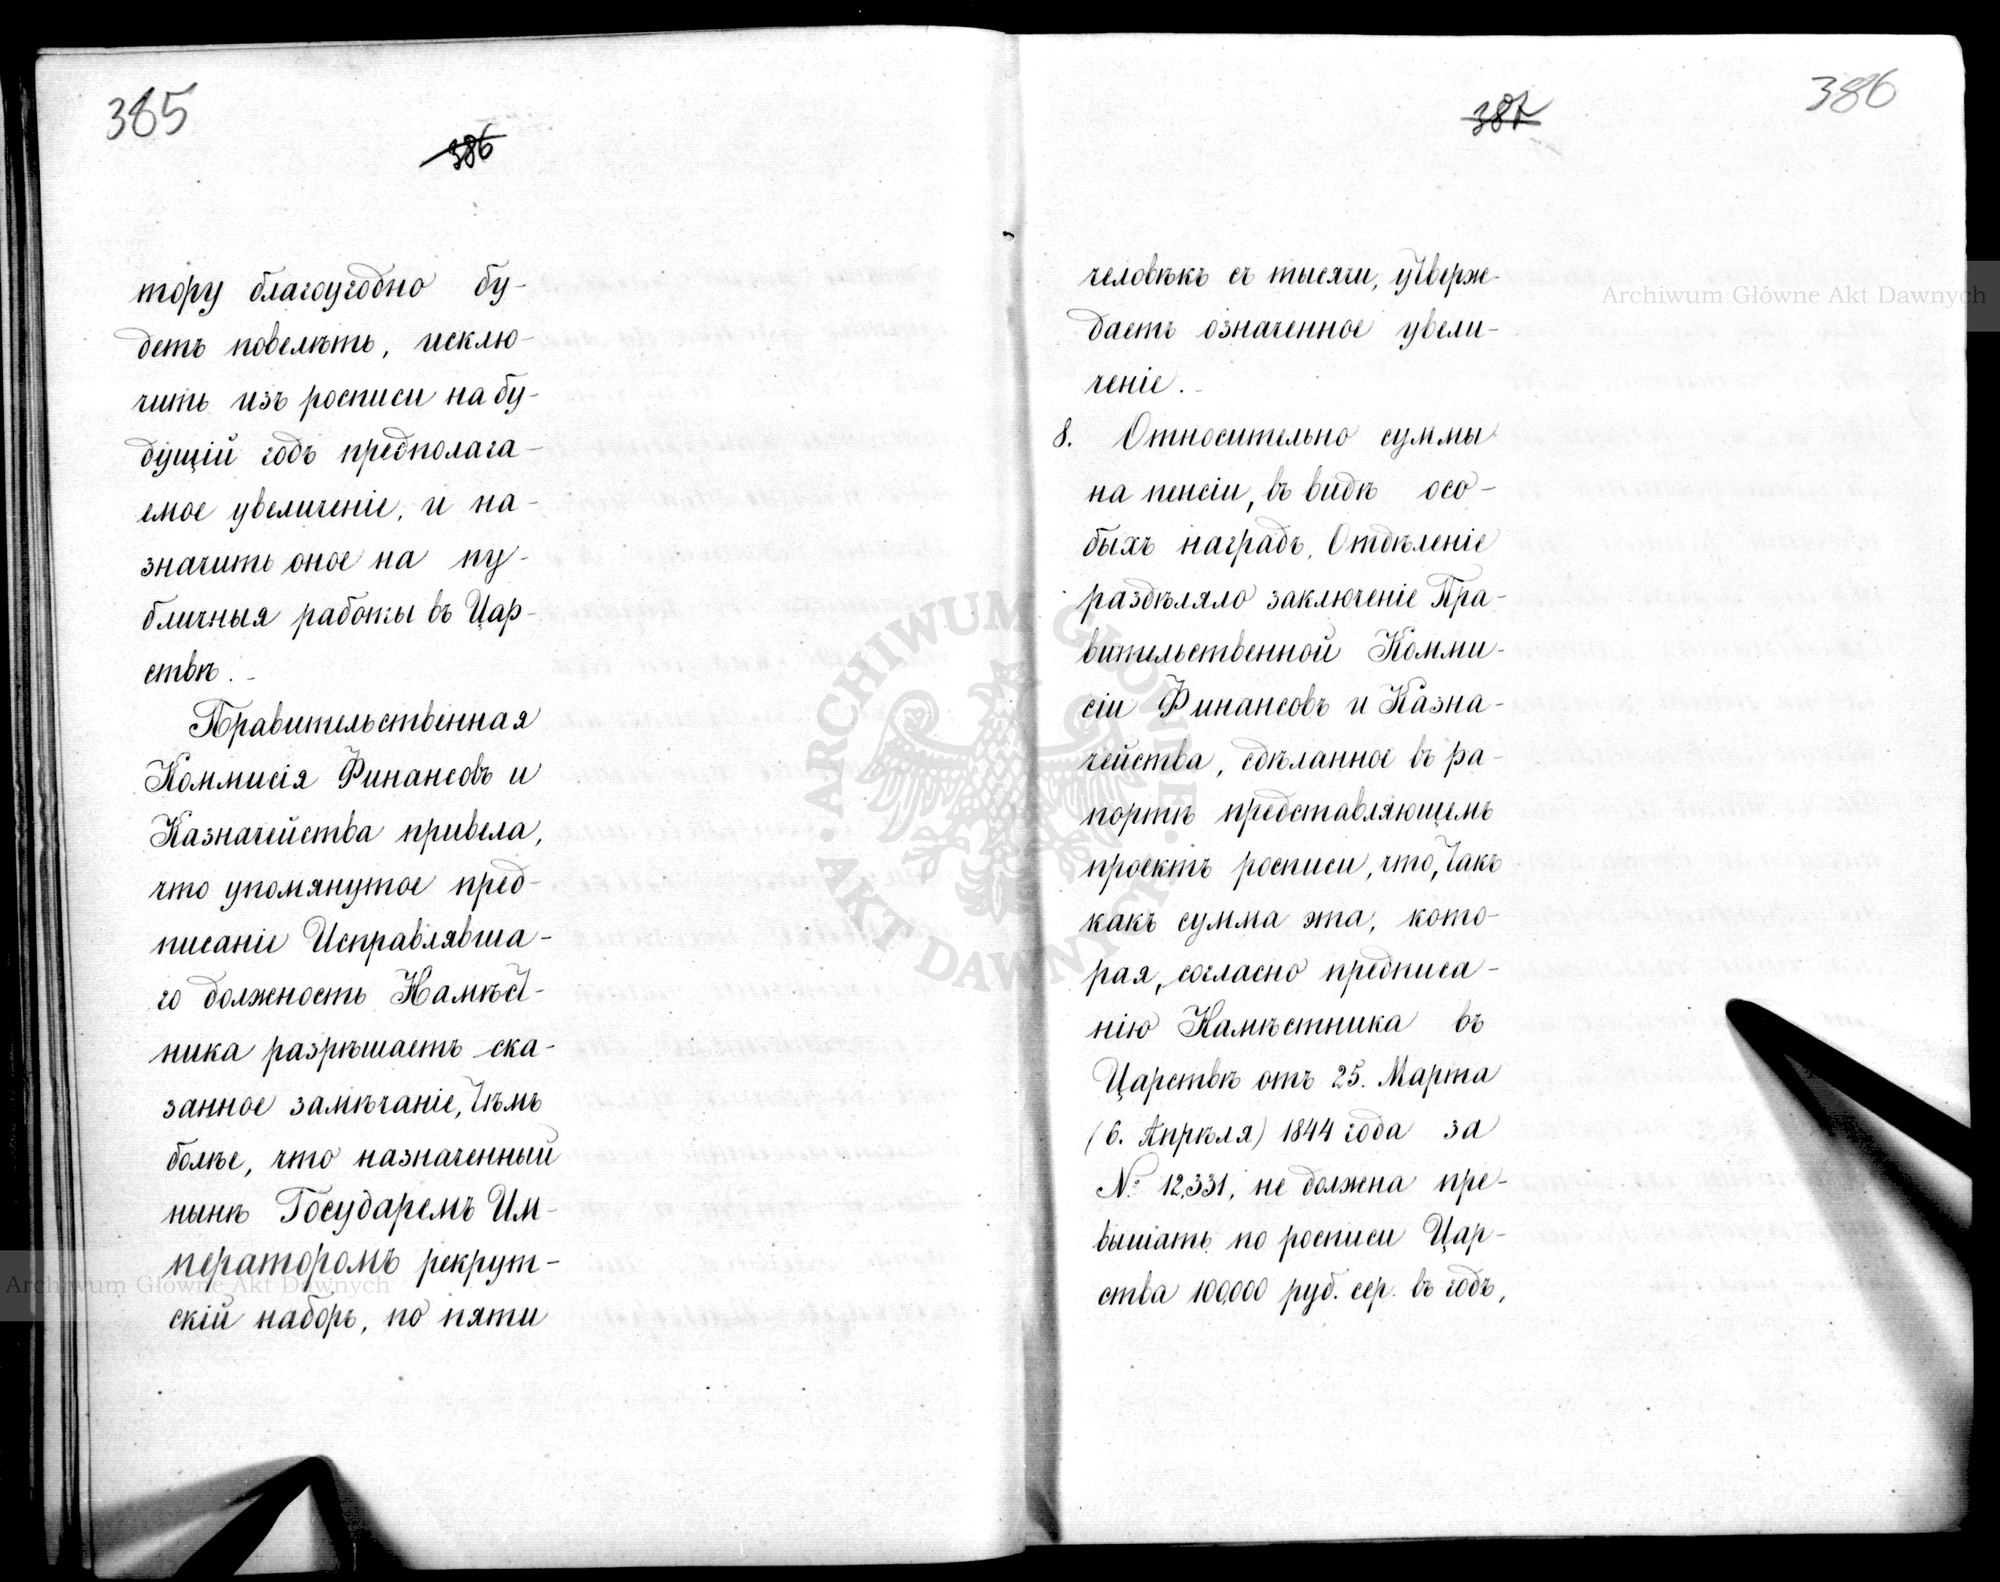 385
386
тору благоугодно бу-
детъ повелѣть, исклю-
чить изъ росписи на бу-
дущій годъ предполага-
емое увеличеніе, и на-
значить оное на пу-
бличныя работы въ Цар-
ствѣ.
Правительственная
Коммисія Финансовъ и
Казначейства привела,
что упомянутое пред-
писаніе Исправлявша-
го должность Намѣст-
ника разрѣшаетъ ска-
занное замѣчаніе, тѣмъ
болѣе, что назначенный
нынѣ Государемъ Им-
ператоромъ рекрут-
скій наборъ, по пяти
386
387
человѣкъ съ тысячи, утверж-
даетъ означенное увели-
ченіе.
8. Относительно суммы
на пенсіи, въ видѣ осо-
быхъ наградъ, Отдѣленіе
раздѣляло заключеніе Пра-
вительственной Комми-
сіи Финансовъ и Казна-
чейства, сдѣланное въ ра-
портѣ представляющемъ
проектъ росписи, что, такъ
какъ сумма эта, кото-
рая, согласно предписа-
нію Намѣстника въ
Царствѣ отъ 25. Марта
(6. Апрѣля) 1844 года за
№ 12,331, не должна пре-
вышать по росписи Цар-
ства 100,000 руб. сер. въ годъ,
Archiwum Główne Akt Dawnych
Archiwum Główne Akt Dawnych
ARCHIWUM GŁÓWNE AKT DAWNYCH